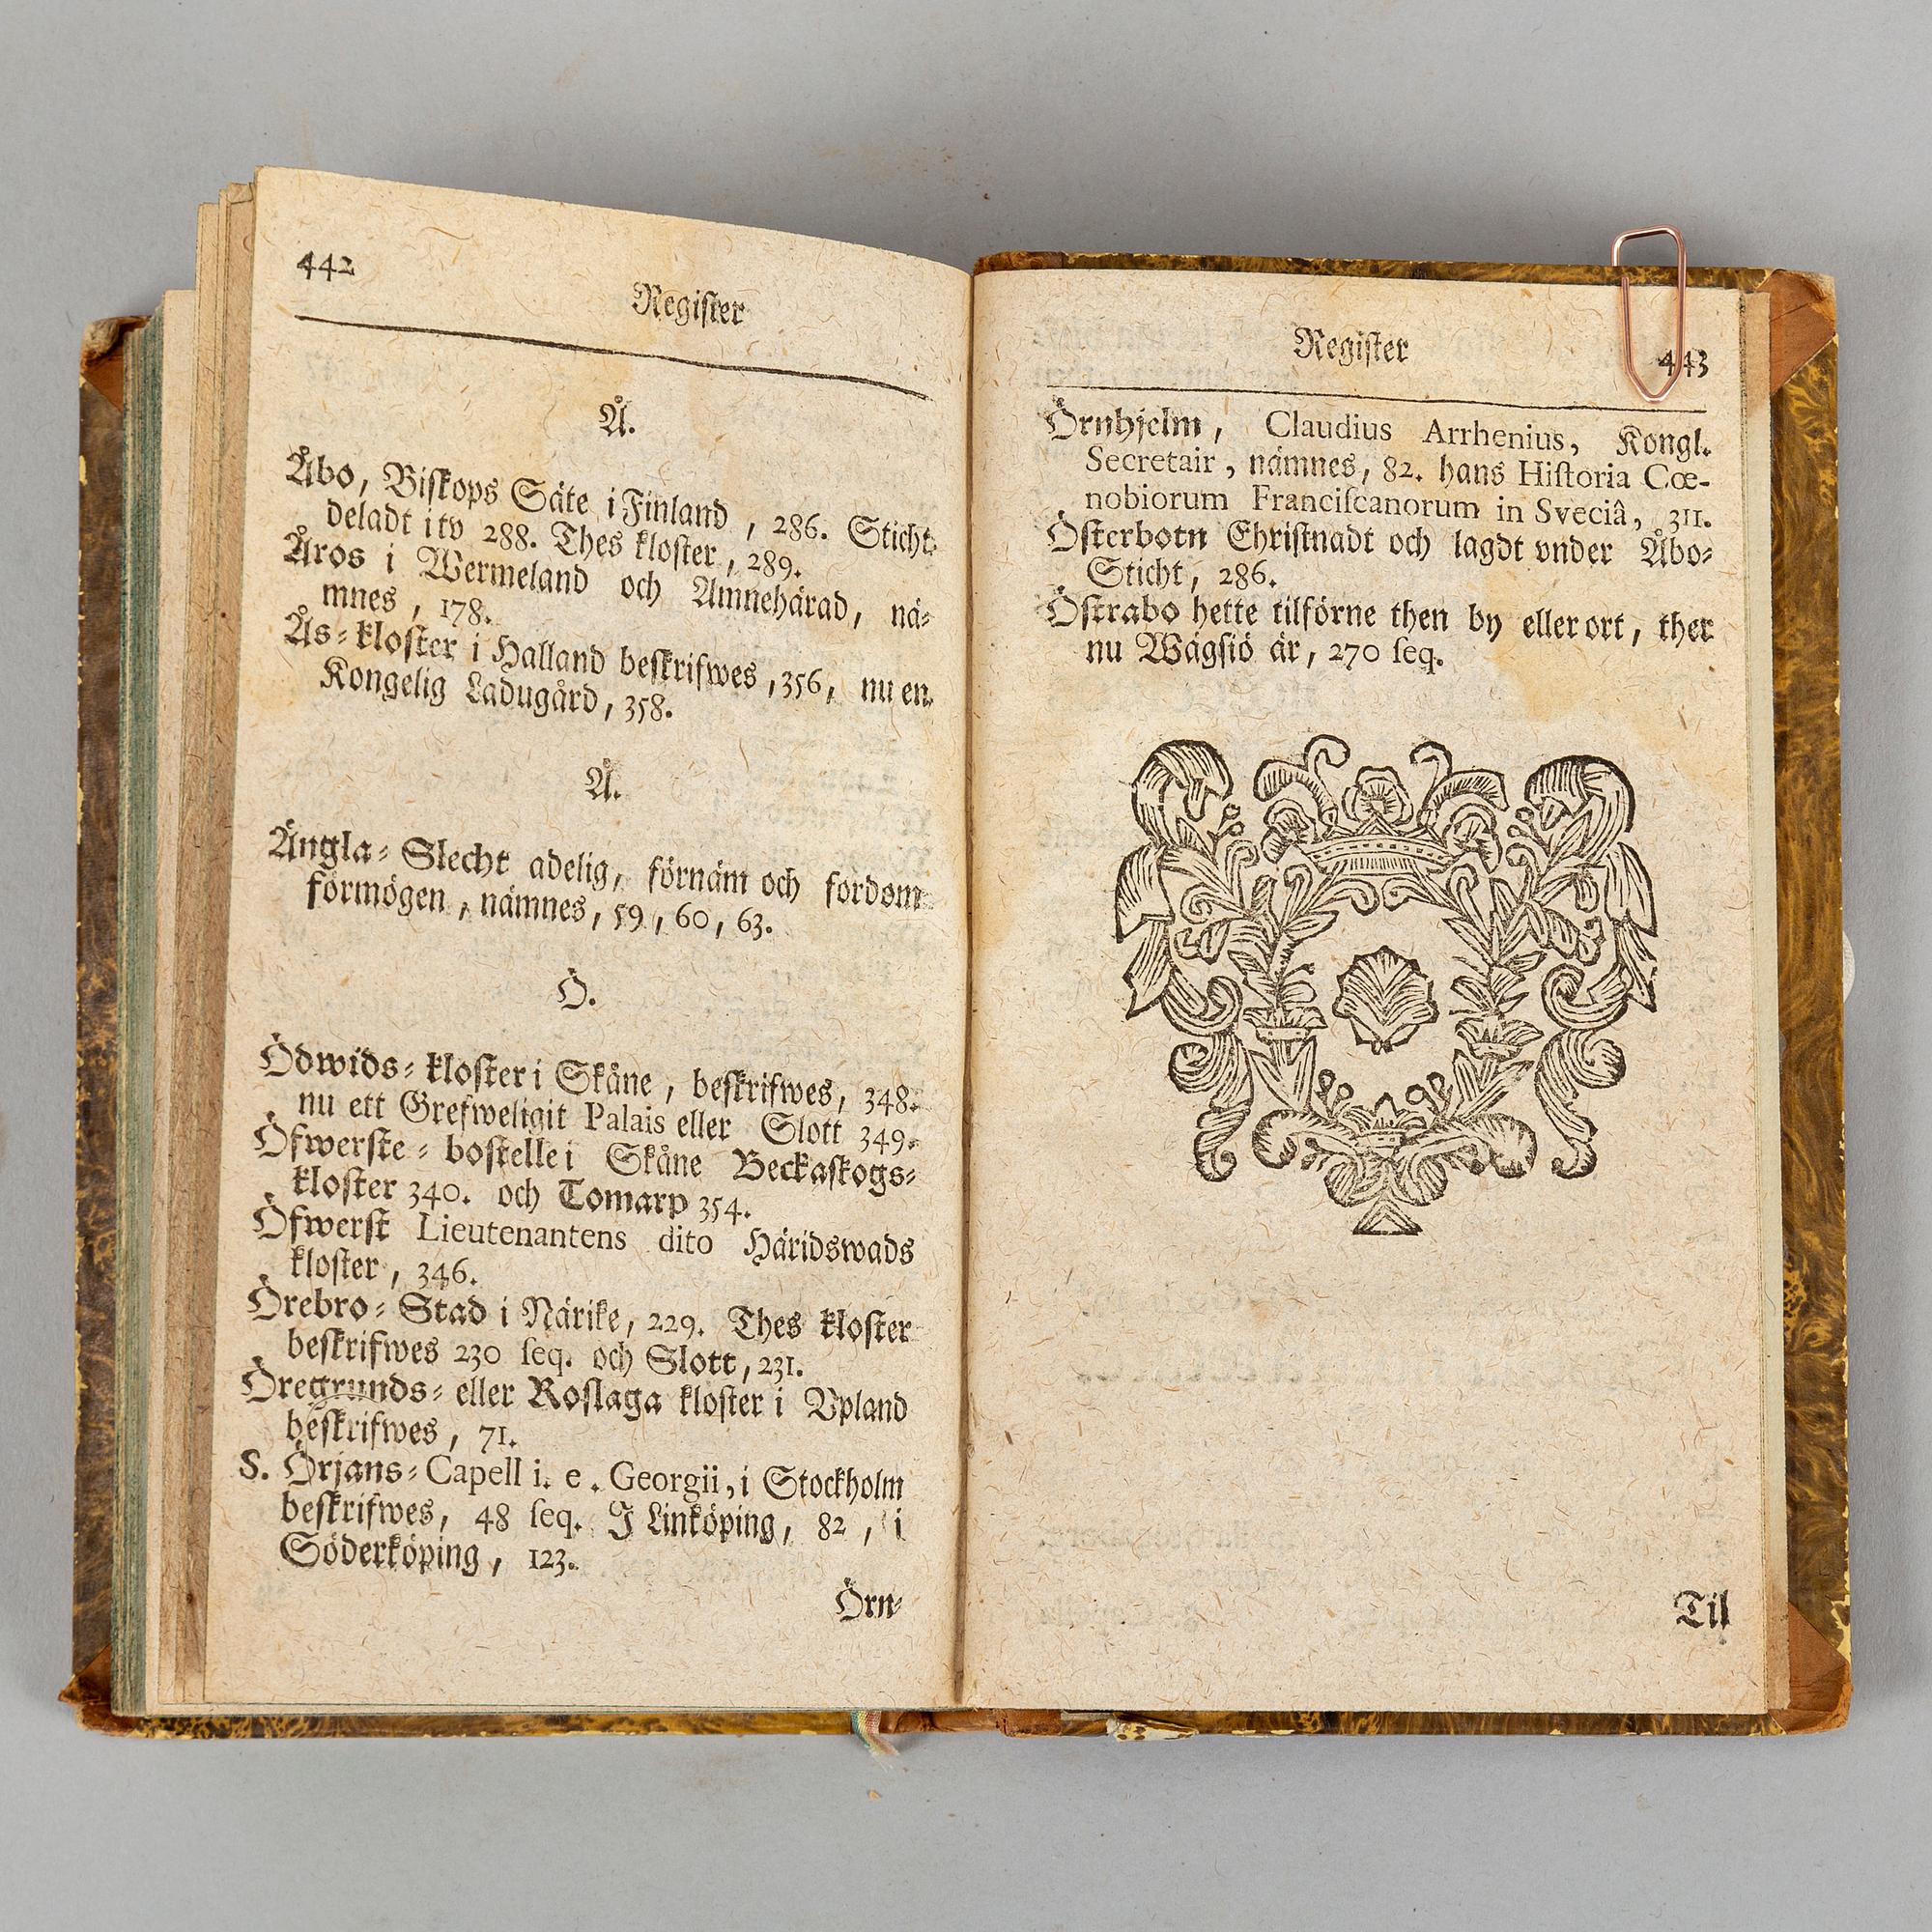 442
Register
Å.
Åbo, Biskops Säte i Finland, 286. Sticht
deladt i tv 288. Thes kloster, 289.
Åros i Wermeland och Amnehärad, nä-
mnes, 178.
Ås-kloster i Halland beskrifwes, 356, nu en
Kongelig Ladugård, 358.
Ä.
Ängla-Slecht adelig, förnäm och fordom
förmögen, nämnes, 59, 60, 63.
Ö.
Ödwids-kloster i Skåne, beskrifwes, 348.
nu ett Grefweligit Palais eller Slott 349.
Öfwerste-bostelle i Skåne Beckaskogs-
kloster 340. och Tomarp 354.
Öfwerst Lieutenantens dito Häridswads
kloster, 346.
Örebro-Stad i Närike, 229. Thes kloster
beskrifwes 230 seq. och Slott, 231.
Öregrunds- eller Roslaga kloster i Vpland
beskrifwes, 71.
S. Örjans-Capell i. e. Georgii, i Stockholm
beskrifwes, 48 seq. I Linköping, 82, i
Söderköping, 123.
Örn-
Register 443
Örnhjelm, Claudius Arrhenius, Kongl.
Secretair, nämnes, 82. hans Historia Cœ-
nobiorum Franciscanorum in Sveciâ, 311.
Österbotn Christnadt och lagdt vnder Åbo-
Sticht, 286.
Östrabo hette tilförne then by eller ort, ther
nu Wägsiö är, 270 seq.
Til